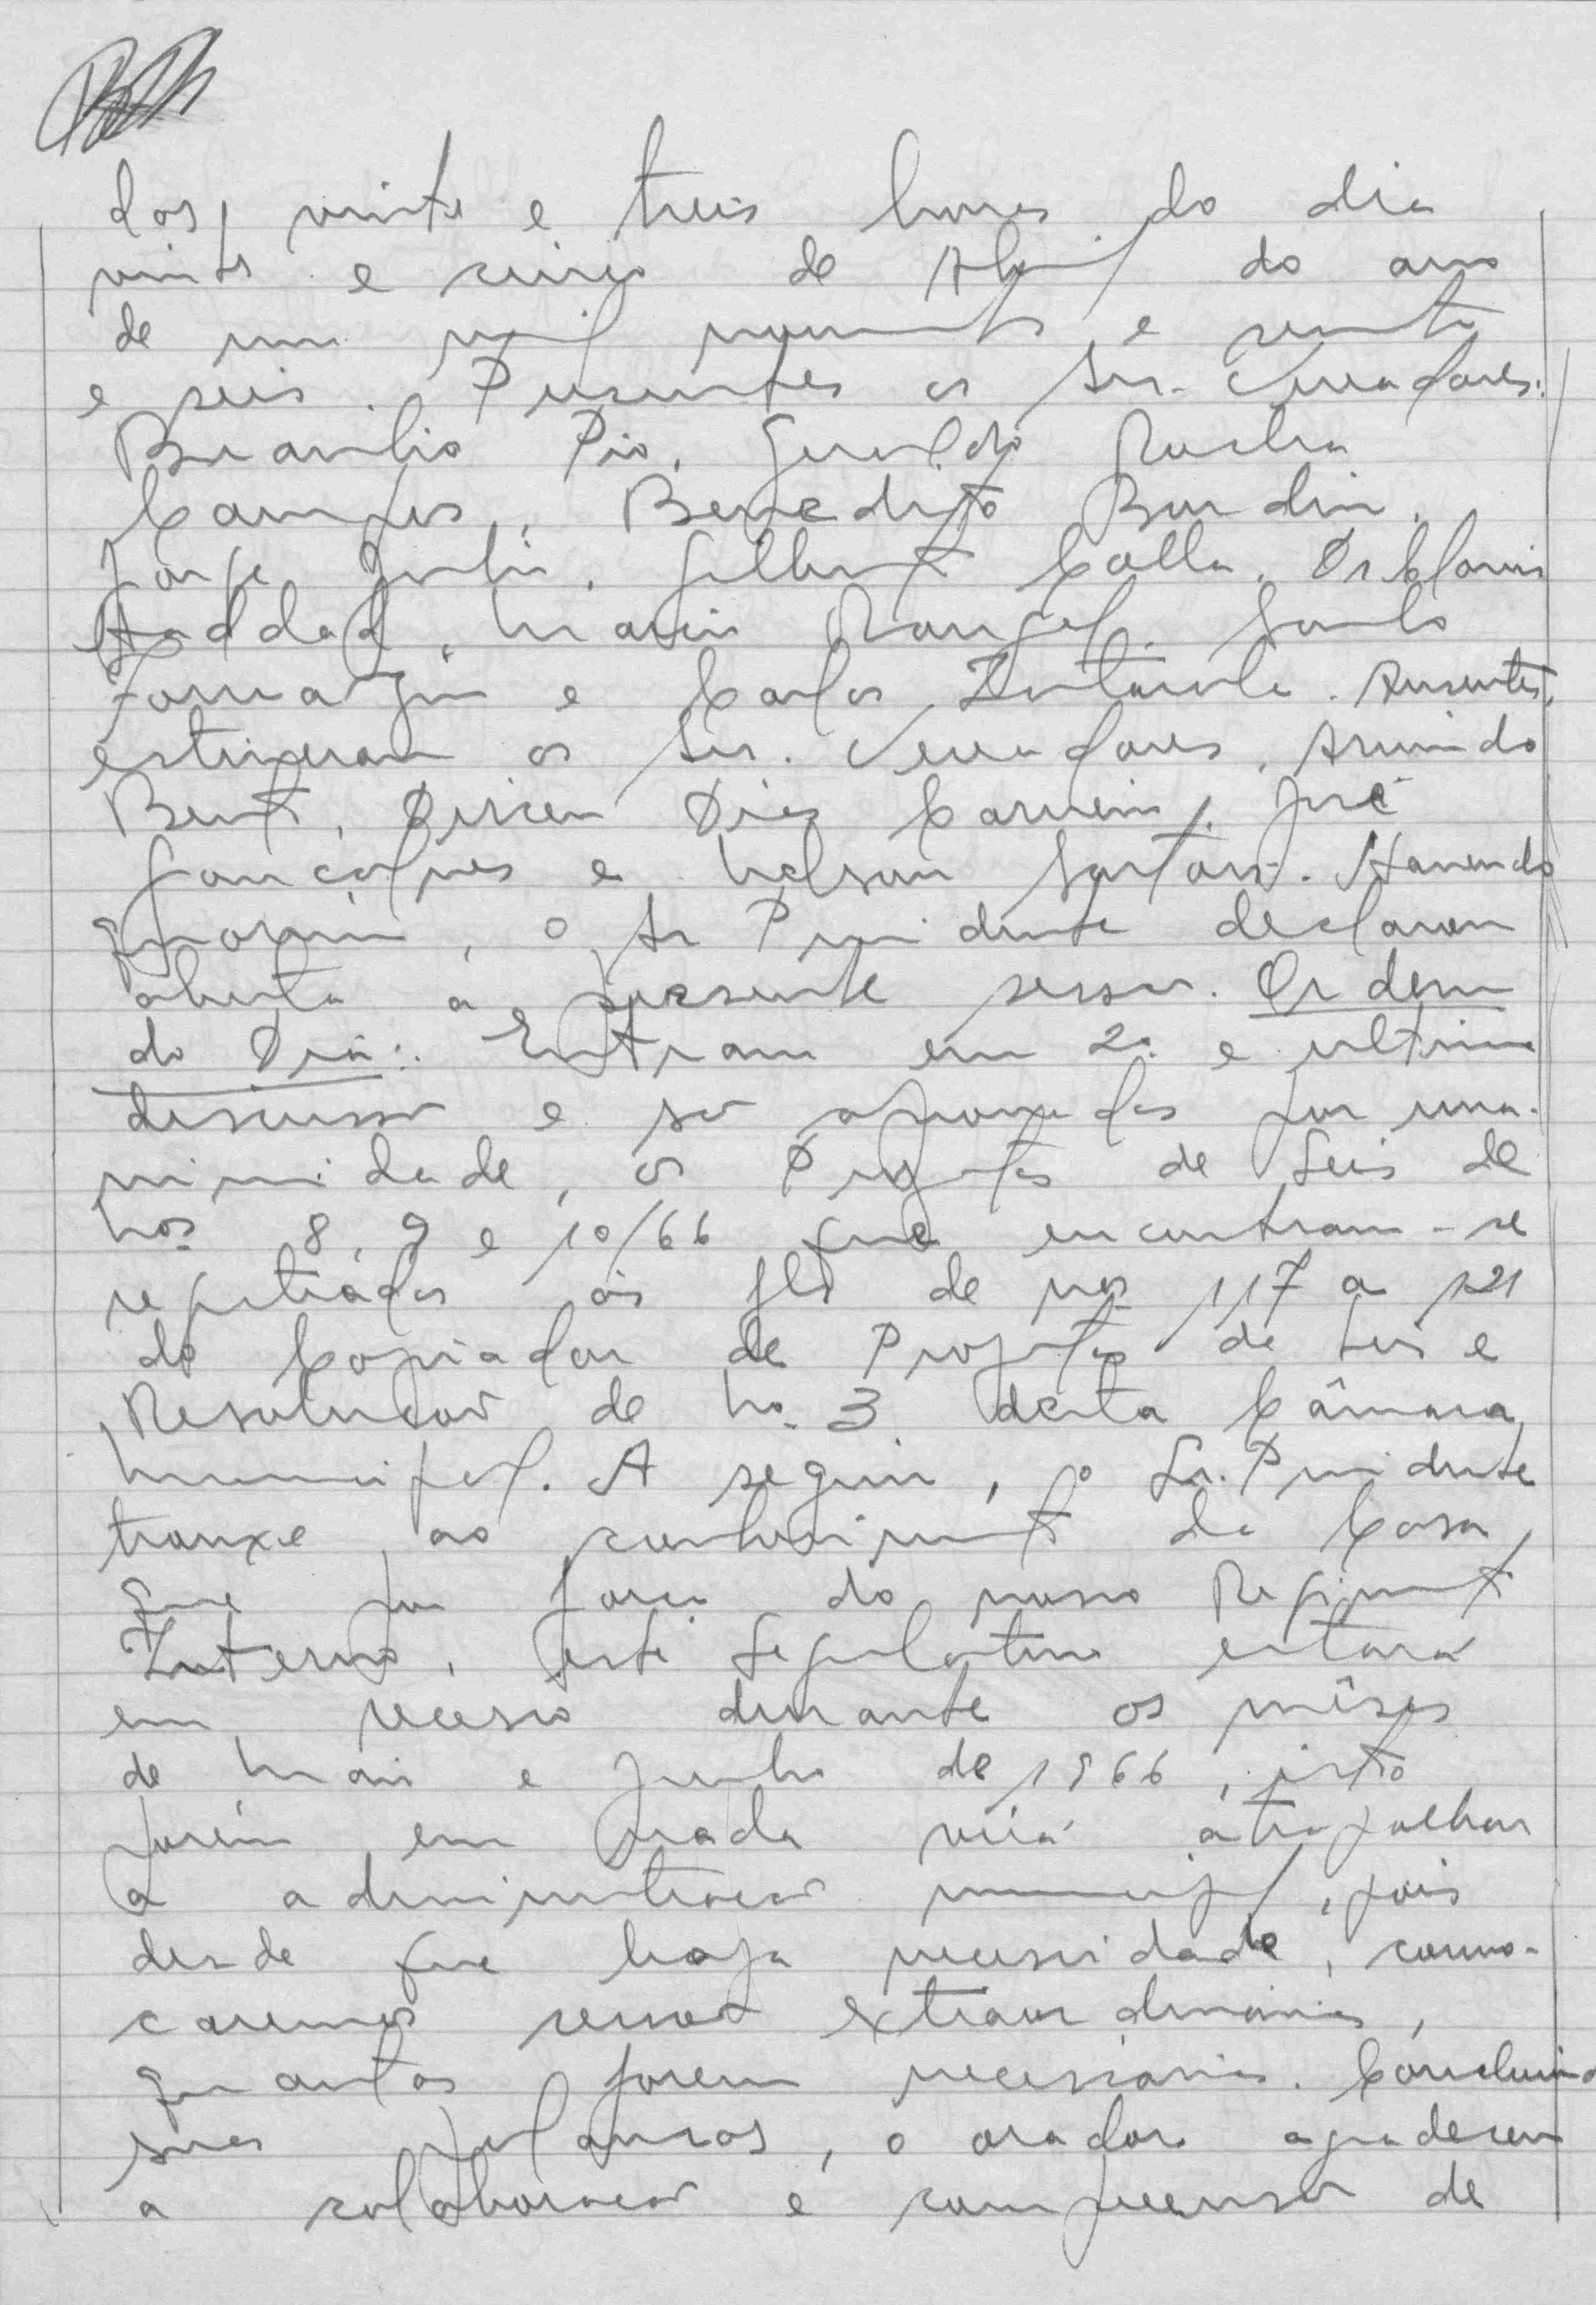 dos, vinte e treis horas do dia
vinte e cinco de Abril do ano
de um mil novecentos e sessenta
e seis. Presentes os Srs. Vereadores:
Braulio Pio, Geraldo Rocha
Campos, Benedito Bordin,
Jorge Gilberto Colla, Dr Clovis
Haddad, Mario Rangel, Santo
Formagin e Carlos. Ausentes,
estiveram os Srs. Vereadores, Armindo
Bento, Dirceu Dias Carneiro, José
Gonçalves e Nelson Sartori. Havendo
numero, o Sr Presidente declarou
aberta a presente sessão. Ordem
do Dia: Entram em 2a. e ultima
discussão e são aprovados por una-
nimidade, os Projetos de Leis de
Nos 8, 9 e 10/66 que encontram-se
registrados às fls de nos 117 a 121
do Copiador de Projetos de Leis e
Resoluções de No. 3 desta Câmara
Municipal. A seguir, o Sr. Presidente
trouxe ao conhecimento da Casa,
que por força do nosso Regimento
Interno, este Legislativo estará
em recesso durante os mêses
de Maio e Junho de 1966, isto
porém em nada virá atrapalhar
a administração municipal, pois
desde que haja necessidade, convo-
caremos sessões extraordinárias,
quantas forem necessarias. Concluindo
suas palavras, o orador agradeceu
a colaboração e compreensão de